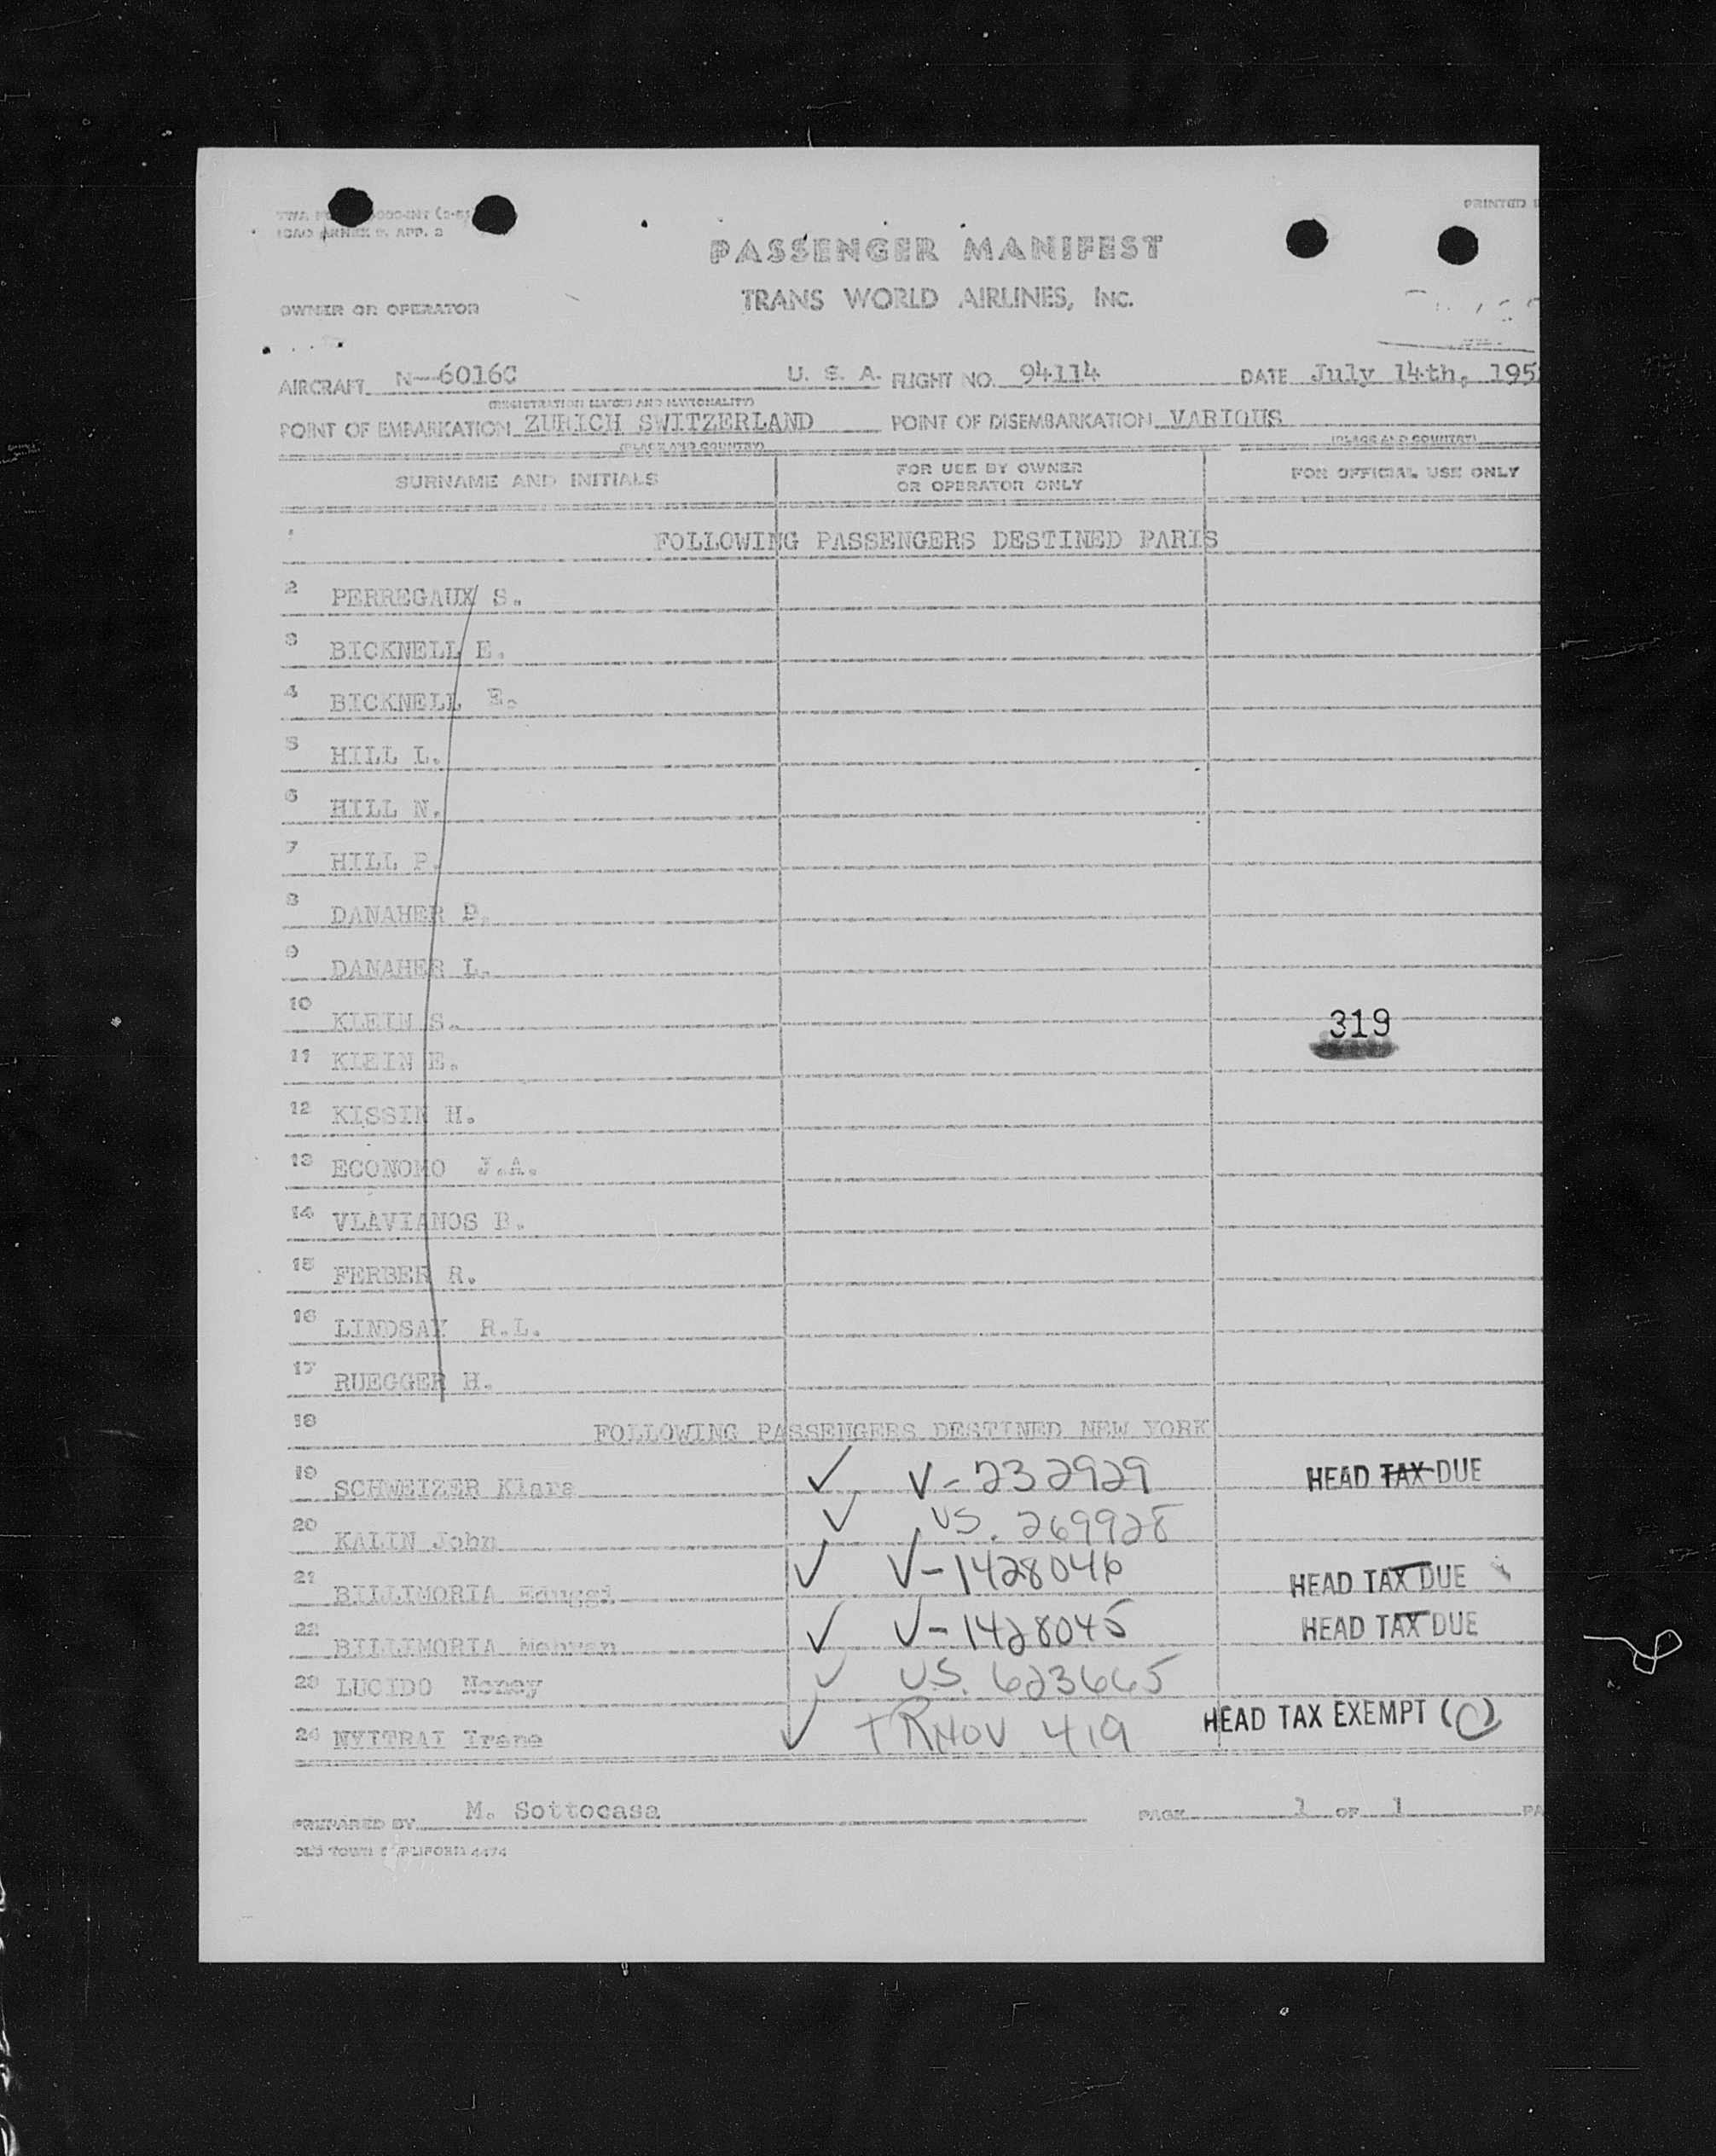 ICAO ANNEX 9, APP. 2
PRINTED
PASSENGER MANIFEST
TRANS WORLD AIRLINES, INC.
OWNER OR OPERATOR
AIRCRAFT N-6016C U. S. A. FLIGHT NO. 94114 DATE July 14th, 195
(REGISTRATION MARKS AND NATIONALITY)
POINT OF EMBARKATION ZURICH SWITZERLAND POINT OF DISEMBARKATION VARIOUS
(PLACE AND COUNTRY) (PLACE AND COUNTRY)
SURNAME AND INITIALS FOR USE BY OWNER OR OPERATOR ONLY FOR OFFICIAL USE ONLY
1 FOLLOWING PASSENGERS DESTINED PARIS
2 PERREGAUX S.
3 BICKNELL E.
4 BICKNELL E.
5 HILL L.
6 HILL N.
7 HILL P.
8 DANAHER P.
9 DANAHER L.
10 KLEIN S. 319
11 KLEIN E.
12 KISSIN H.
13 ECONOMO J.A.
14 VLAVIANOS B.
15 FERBER R.
16 LINDSAY R.L.
17 RUEGGER H.
18 FOLLOWING PASSENGERS DESTINED NEW YORK
19 SCHWEIZER Klara ✓ V-232929 HEAD TAX DUE
20 KALIN John ✓ US. 269928
21 BILLIMORIA ✓ V-1428046 HEAD TAX DUE
22 BILLIMORIA ✓ V-1428045 HEAD TAX DUE
23 LUCIDO ✓ US. 623665
24 NYITRAI Irene ✓ 419 HEAD TAX EXEMPT (C)
PREPARED BY M. Sottocasa PAGE 1 OF 1 PA